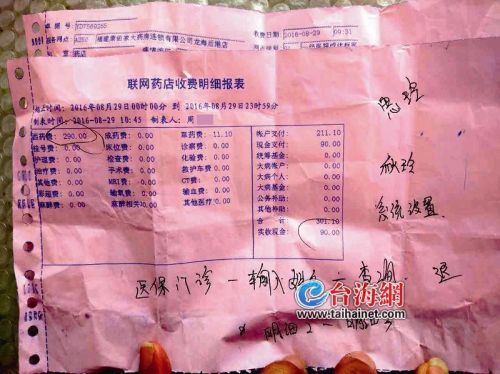 单据号: YD7569265
2016-08-29 09:31
联网药店收费明细报表
起止时间: 2016年08月29日00时00分 到 2016年08月29日23时59分
制表时间: 2016-08-29 10:45 制表人: 周
西药费: 290.00 成药费: 0.00 草药费: 11.10 帐户支付: 211.10
挂号费: 0.00 床位费: 0.00 诊察费: 0.00 现金支付: 90.00
护理费: 0.00 检查费: 0.00 化验费: 0.00 统筹基金: 0.00
治疗费: 0.00 手术费: 0.00 救护车费: 0.00 大病帐户: 0.00
其他费: 0.00 MRI费: 0.00 CT费: 0.00 大病个人: 0.00
0.00 输氧费: 0.00 输血费: 0.00 大病基金: 0.00
麻醉费: 0.00 麻醉相关: 0.00 其他医疗: 0.00 公务补助: 0.00
其他补助: 0.00
合计: 301.10
实收现金: 90.00
系统设置
医保门诊 — 输入 — 查 退
台海網
www.taihainet.com
明细